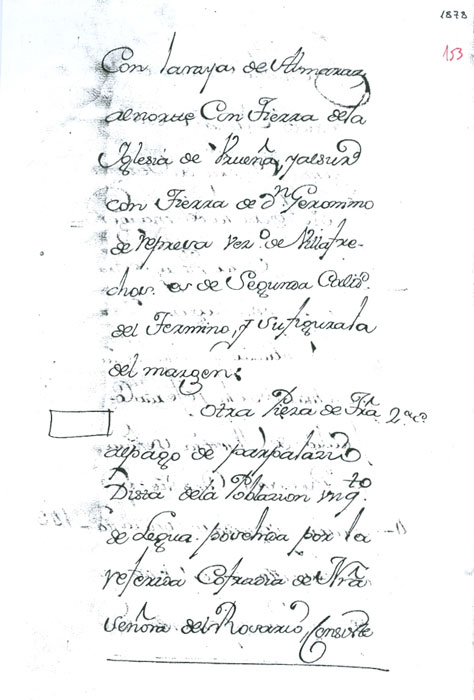 1878
153
Con laraya, de Almaraz
alnorte Con Tierra dela
Yglesia de Prueña, yalsur
con Tierra de Dn. Geronimo
de represa vezo. de Villafre-
chos. es de Segunda Calid.
del Termino, y sufigurala
del margen:
otra Pieza de Tra. 2ª c.
alpago de parpalario.
Dista dela Poblazion vnq.to
de Legua. posehida por la
referida Cofradia de Nra
señora del Rosario, Consiste